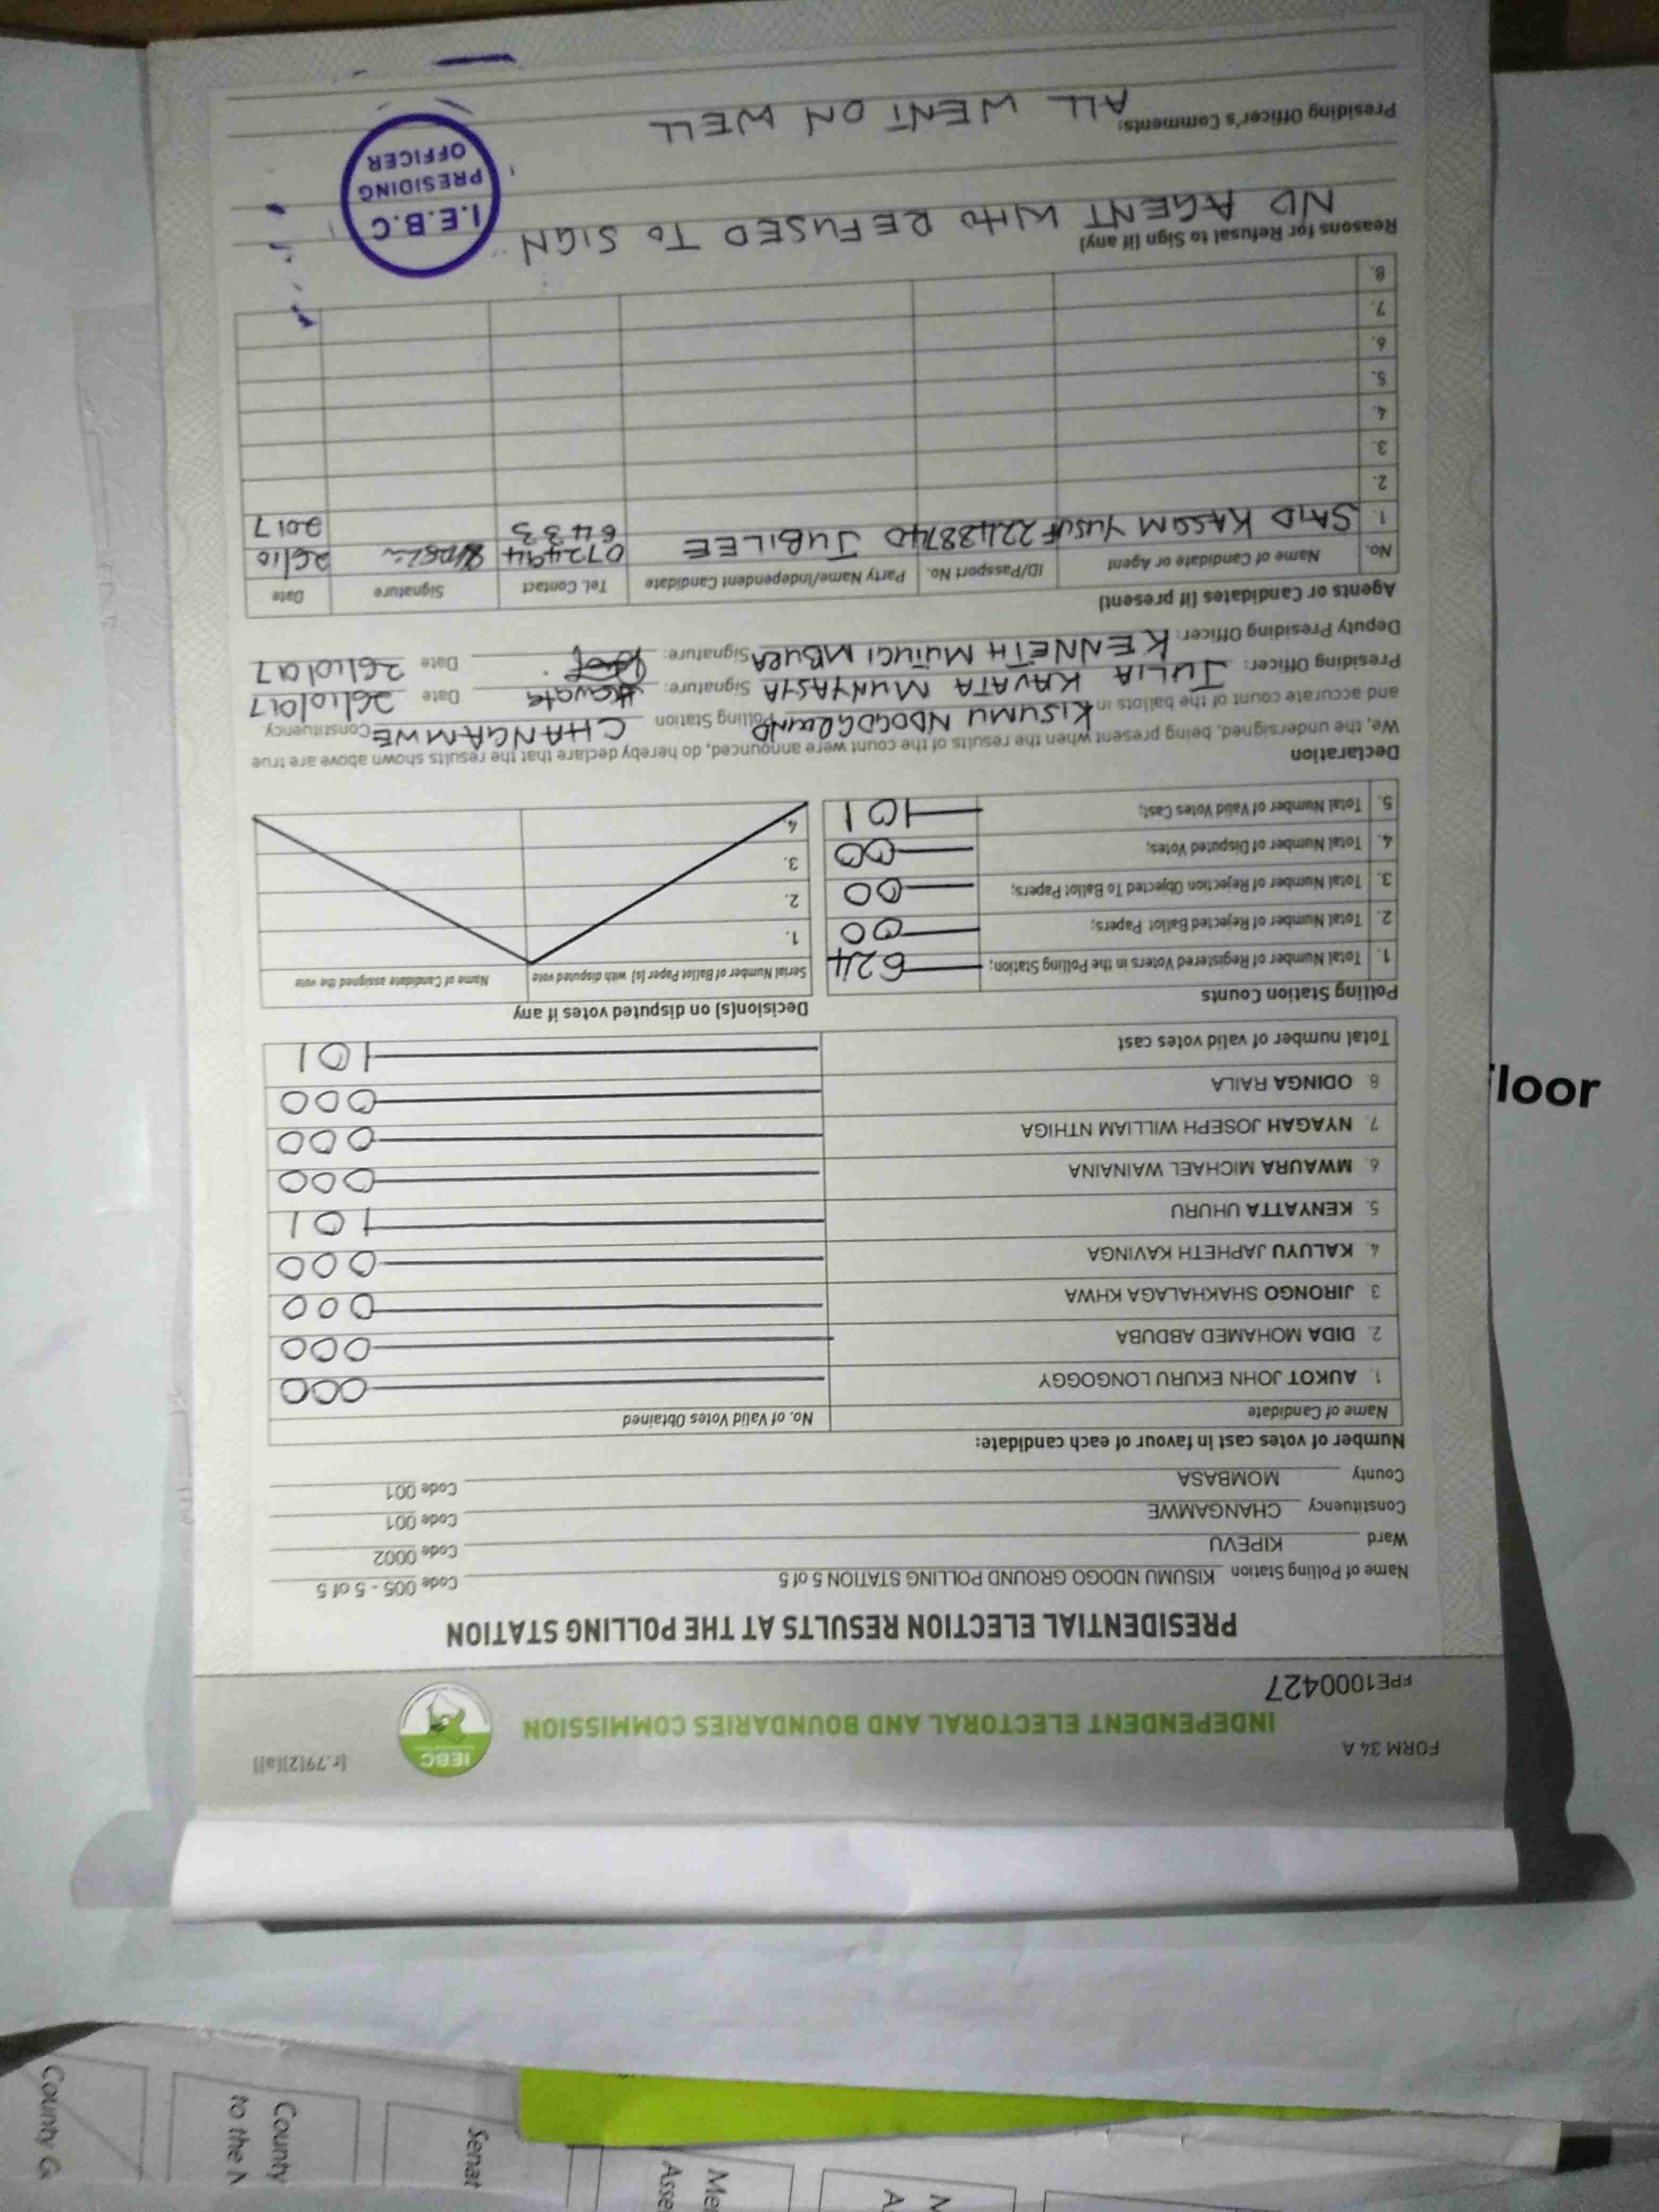 FORM 34 A
[r.79(2)(a)]
INDEPENDENT ELECTORAL AND BOUNDARIES COMMISSION
IEBC
FPE1000427
PRESIDENTIAL ELECTION RESULTS AT THE POLLING STATION
Name of Polling Station KISUMU NDOGO GROUND POLLING STATION 5 of 5 Code 005 - 5 of 5
Ward KIPEVU Code 0002
Constituency CHANGAMWE Code 001
County MOMBASA Code 001
Number of votes cast in favour of each candidate:
Name of Candidate No. of Valid Votes Obtained
1. AUKOT JOHN EKURU LONGOGGY 000
2. DIDA MOHAMED ABDUBA 000
3. JIRONGO SHAKHALAGA KHWA 000
4. KALUYU JAPHETH KAVINGA 000
5. KENYATTA UHURU 101
6. MWAURA MICHAEL WAINAINA 000
7. NYAGAH JOSEPH WILLIAM NTHIGA 000
8. ODINGA RAILA 000
Total number of valid votes cast 101
Polling Station Counts
1. Total Number of Registered Voters in the Polling Station; 624
2. Total Number of Rejected Ballot Papers; 00
3. Total Number of Rejection Objected To Ballot Papers; 00
4. Total Number of Disputed Votes; 00
5. Total Number of Valid Votes Cast; 101
Decision(s) on disputed votes if any
Serial Number of Ballot Paper (s) with disputed vote Name of Candidate assigned the vote
1.
2.
3.
4.
Declaration
We, the undersigned, being present when the results of the count were announced, do hereby declare that the results shown above are true
and accurate count of the ballots in KISUMU NDOGO GROUND Polling Station CHANGAMWE Constituency
Presiding Officer: JULIA KAVATA MUNYASYA Signature: Kavata Date 26/10/017
Deputy Presiding Officer: KENNETH MUTUGI MBURA Signature: Date 26/10/017
Agents or Candidates (if present)
No. Name of Candidate or Agent ID/Passport No. Party Name/Independent Candidate Tel. Contact Signature Date
1. SAID KASSIM YUSUF 22488740 JUBILEE 072494 6433 26/10 2017
2.
3.
4.
5.
6.
7.
8.
Reasons for Refusal to Sign (if any)
NO AGENT WHO REFUSED TO SIGN
I.E.B.C
PRESIDING
OFFICER
Presiding Officer's Comments:
ALL WENT ON WELL
floor
County
to the
Senat